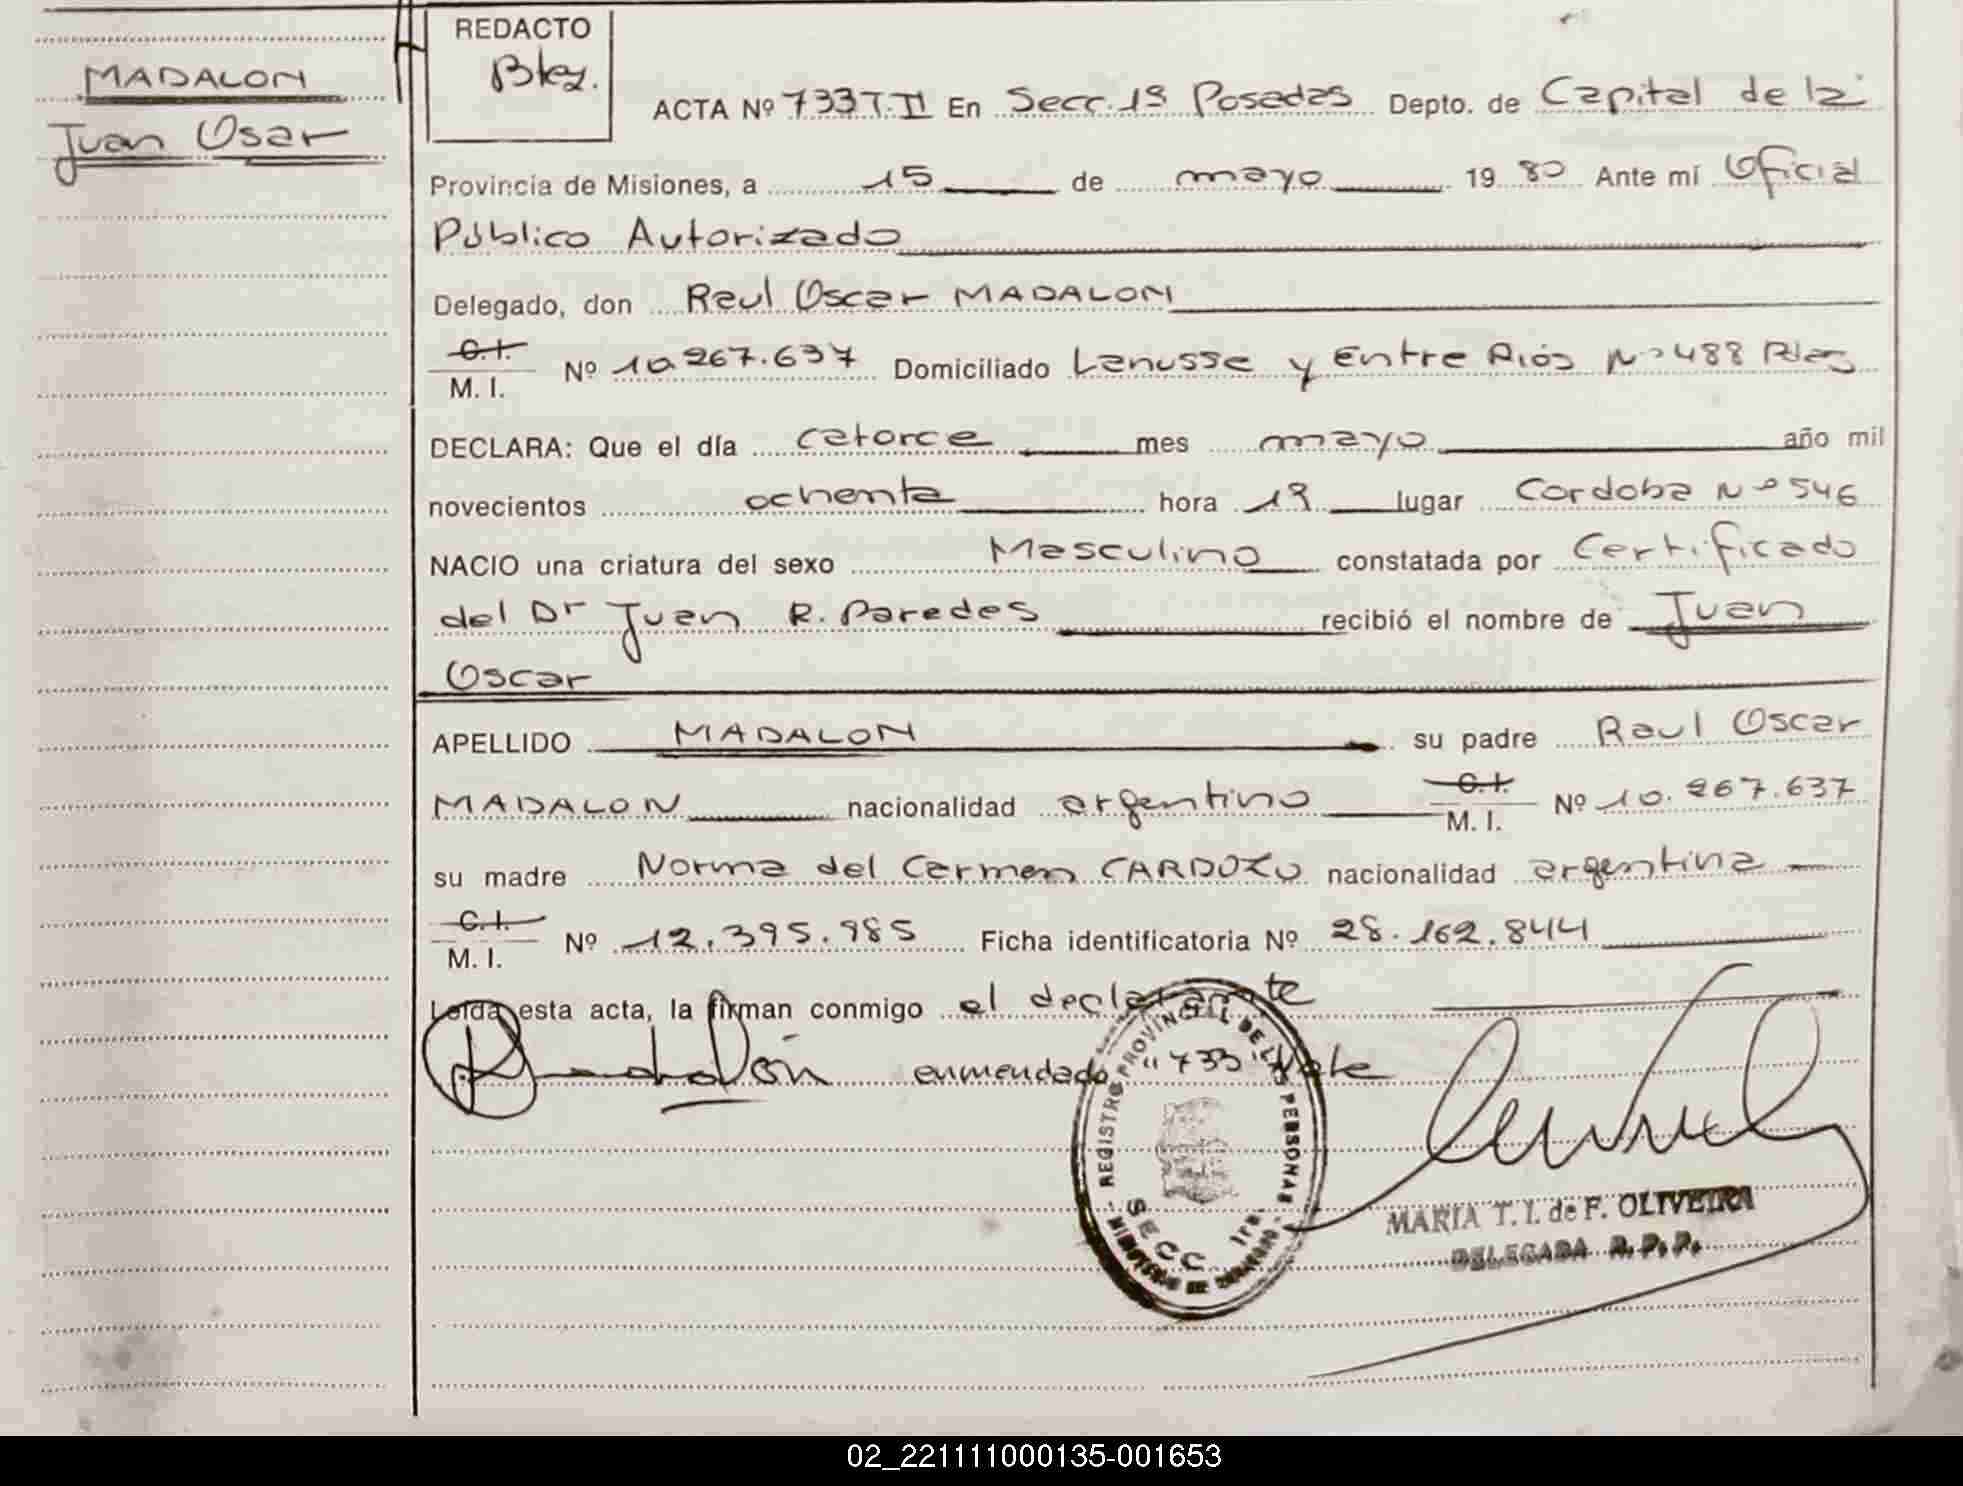 MADALON
Juan Osar
REDACTO
Blez.
ACTA Nº 733 T. II En Secc. 1ª Posadas Depto. de Capital de la
Provincia de Misiones, a 15 de mayo 19 80 Ante mí Oficial
Público Autorizado
Delegado, don Raul Oscar MADALON
C.I.
M. I. Nº 10.267.637 Domiciliado Lanusse y Entre Riós Nº 488 Pdas
DECLARA: Que el día catorce mes mayo año mil
novecientos ochenta hora 19 lugar Cordoba Nº 546
NACIO una criatura del sexo Masculino constatada por Certificado
del Dr Juan R. Paredes recibió el nombre de Juan
Oscar
APELLIDO MADALON su padre Raul Oscar
MADALON nacionalidad argentino C.I. M. I. Nº 10.267.637
su madre Norma del Carmen CARDOZO nacionalidad argentina
C.I.
M. I. Nº 12.395.985 Ficha identificatoria Nº 28.162.844
Leída esta acta, la firman conmigo el declarante
Madalón enmendado "733" Vale
REGISTRO PROVINCIAL DE LAS PERSONAS
SECC. 1ra.
MARIA T. I. de F. OLIVEIRA
DELEGADA R. P. P.
02_221111000135-001653